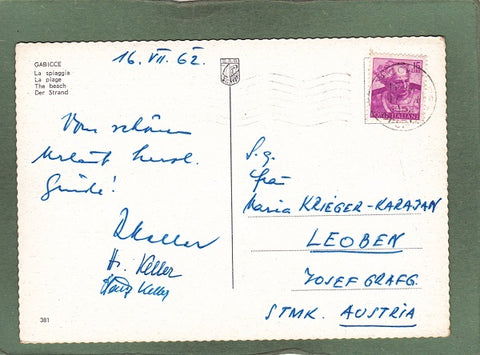 GABICCE
La spiaggia
La plage
The beach
Der Strand
16. VII. 62.
15
Vom schönen
Urlaub herzl.
Grüße!
Keller
Hr. Keller
Keller
S. g.
Frau
Maria KRIEGER-KARAJAN
LEOBEN
JOSEF GRAFG.
STMK. AUSTRIA
381